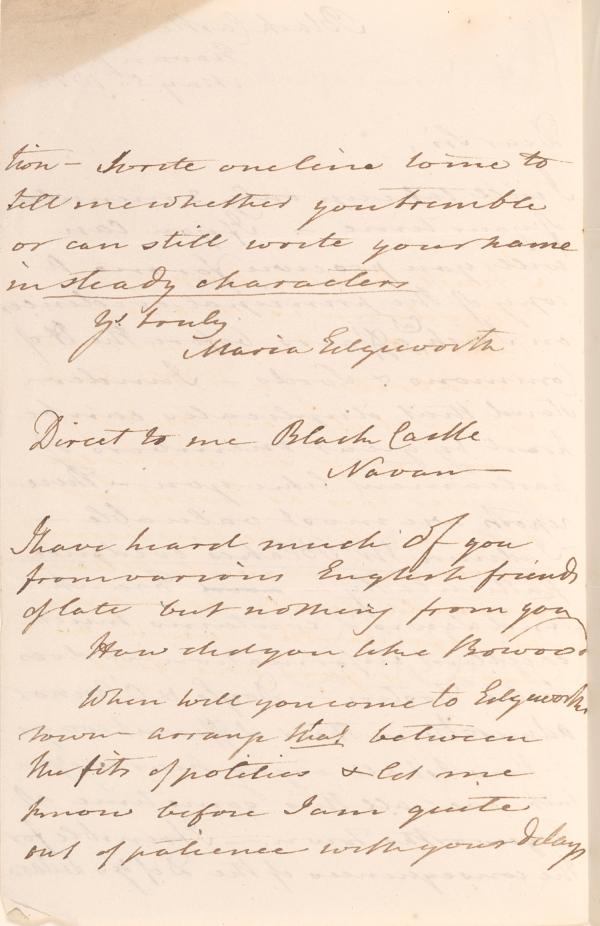 tion – & write one line to me to
tell me whether you tremble
or can still write your name
in steady characters
Yr truly
Maria Edgeworth
Direct to me Black Castle
Navan
I have heard much of you
from various English friends
of late but nothing from you
How did you like Bowood
When will you come to Edgeworths
town – arrange that between
the fits of politics & let me
know before I am quite
out of patience with your delays